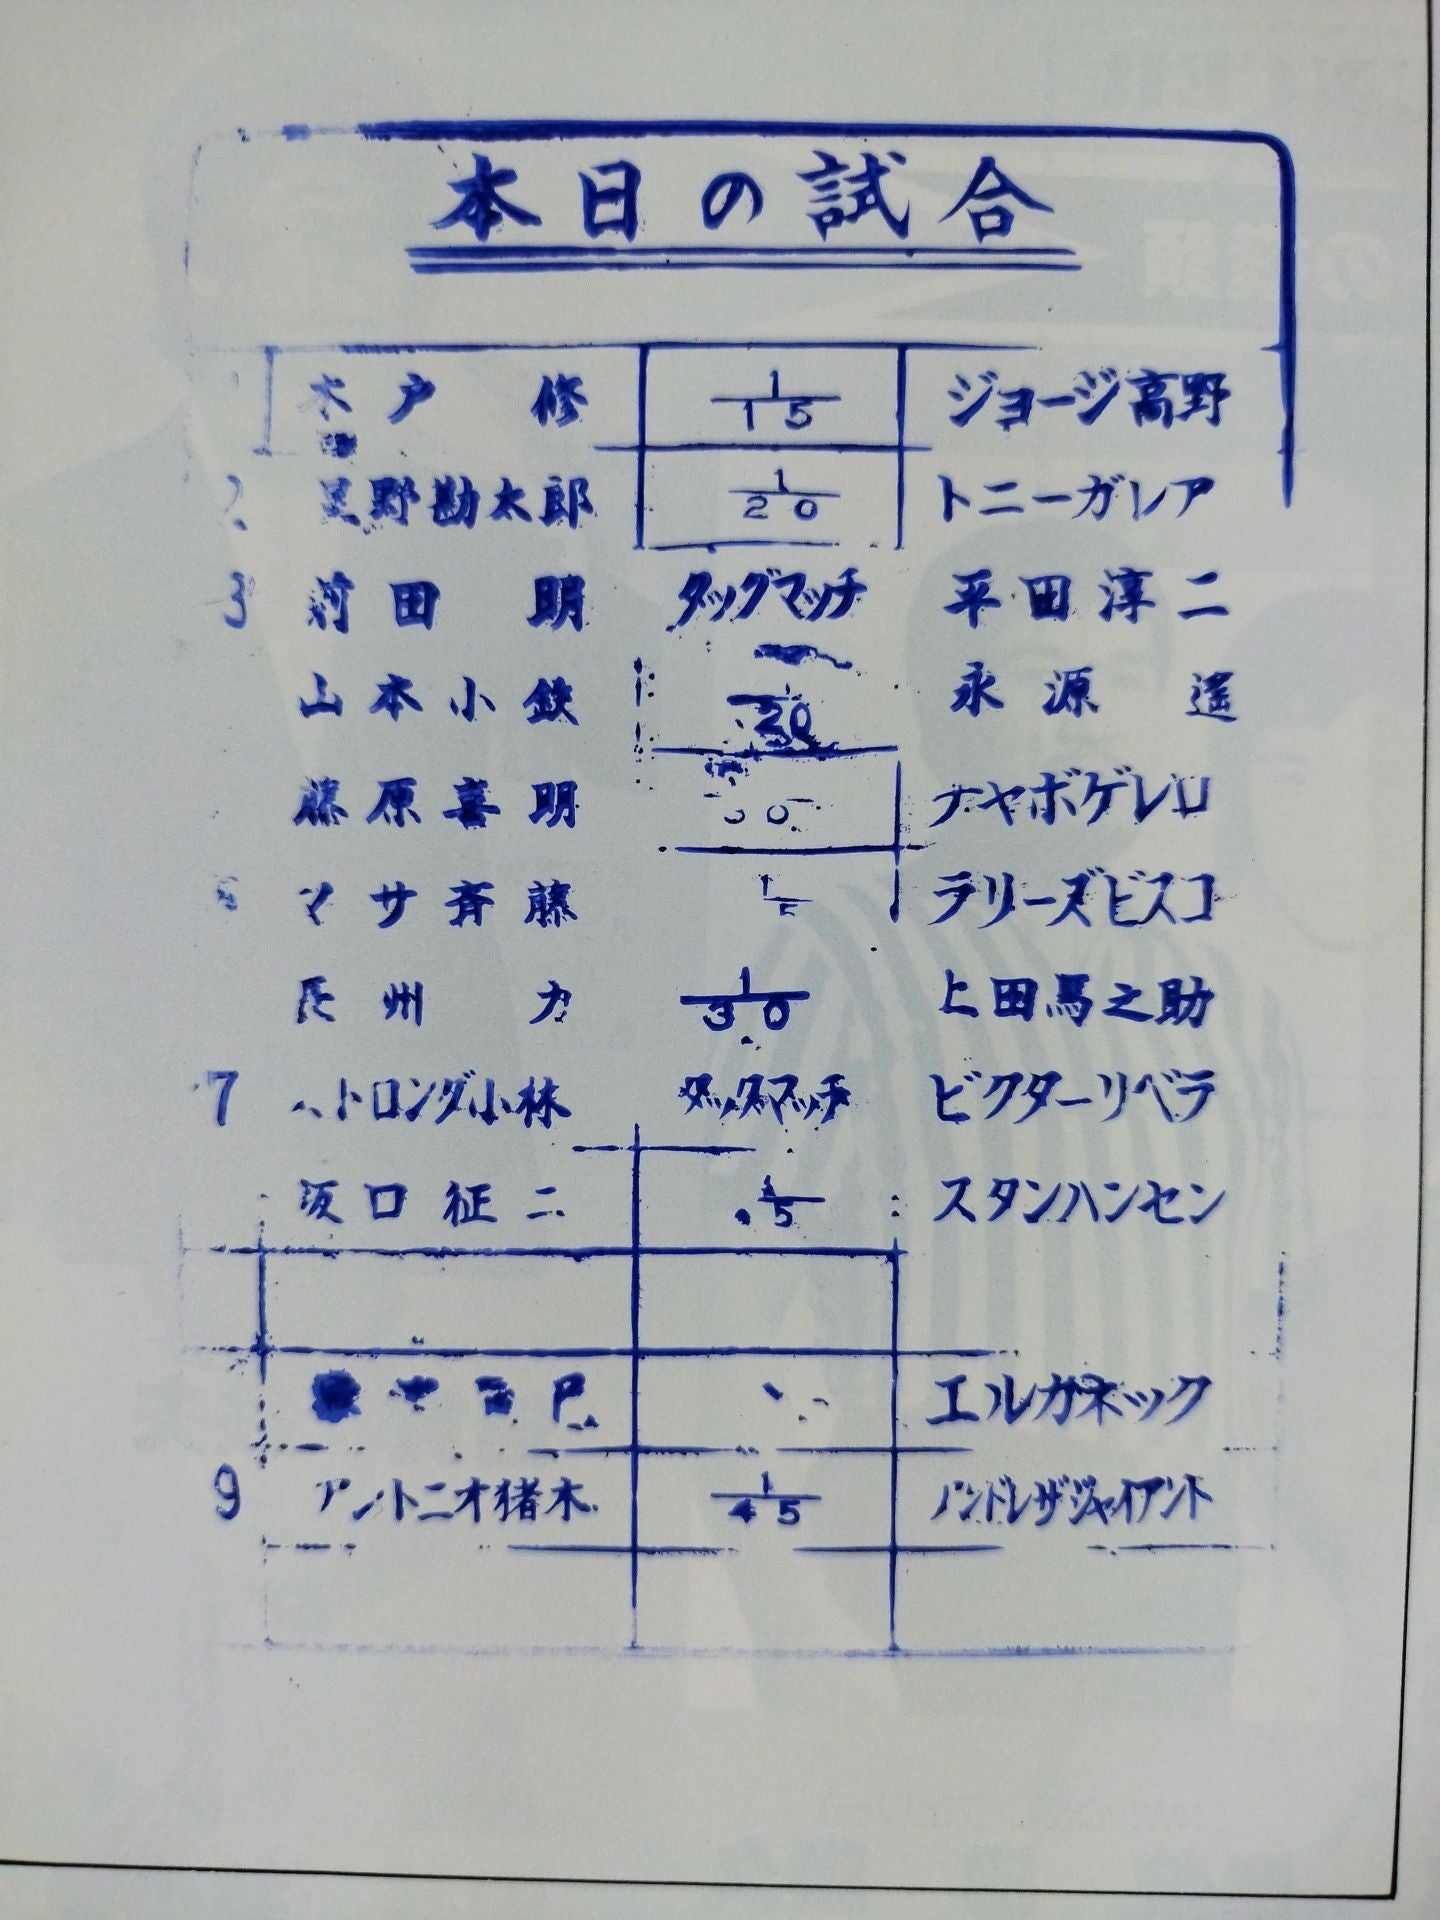 本日の試合
木戸修 1/15 ジョージ高野
2 星野勘太郎 1/20 トニーガレア
3 前田明 タッグマッチ 平田淳二
山本小鉄 1/30 永源遙
藤原喜明 チャボゲレロ
マサ斉藤 ラリーズビスコ
長州力 1/30 上田馬之助
7 ストロング小林 タッグマッチ ビクターリベラ
坂口征二 スタンハンセン
エルカネック
9 アントニオ猪木 1/45 アンドレザジャイアント